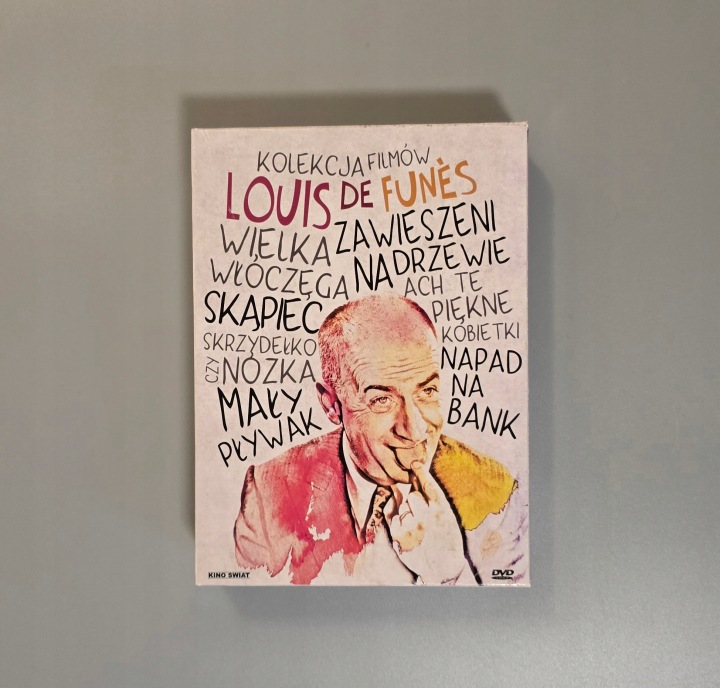 KOLEKCJA FILMÓW
LOUIS DE FUNÈS
WIELKA
WŁÓCZĘGA
ZAWIESZENI
NA DRZEWIE
SKĄPIEC
ACH TE
PIĘKNE
KOBIETKI
SKRZYDEŁKO
CZY NÓŻKA
NAPAD
NA
BANK
MAŁY
PŁYWAK
KINO ŚWIAT
DVD